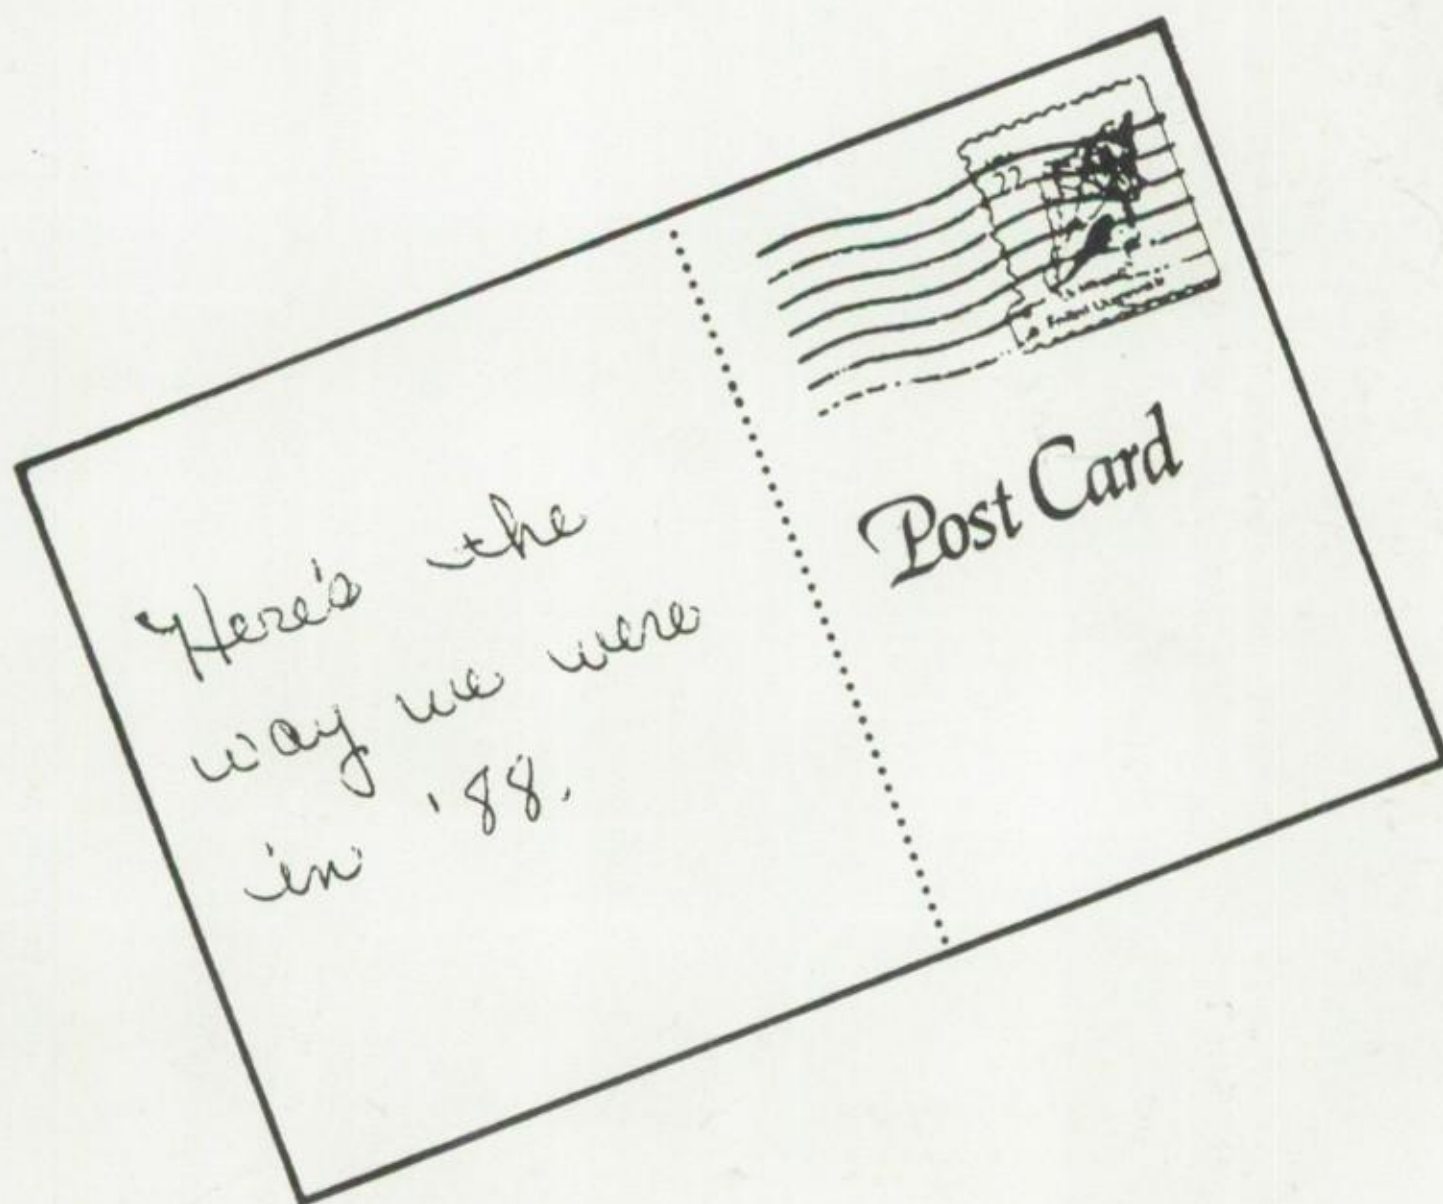 Here's the
way we were
in '88.
22
Post Card